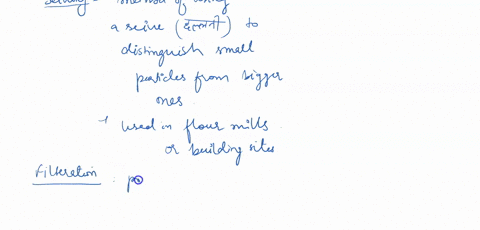 Sieving - method of using
a seive (छलनी) to
distinguish small
particles from bigger
ones.
→ used in flour mills
or building sites
Filteration : p